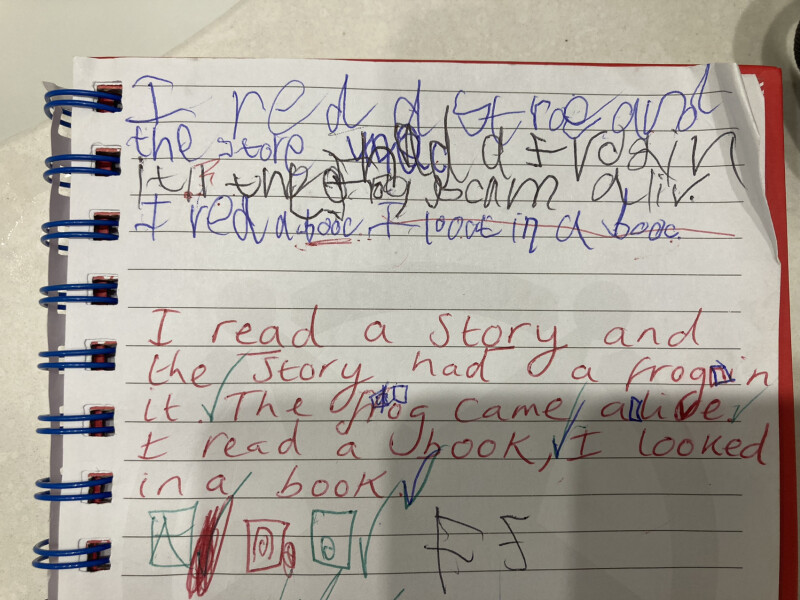 I red a stroe and
the store had a frog in
it. the frog cam aliv.
I red a booc I looct in a booc
I read a story and
the story had a frog in
it. The frog came alive.
I read a book, I looked
in a book.